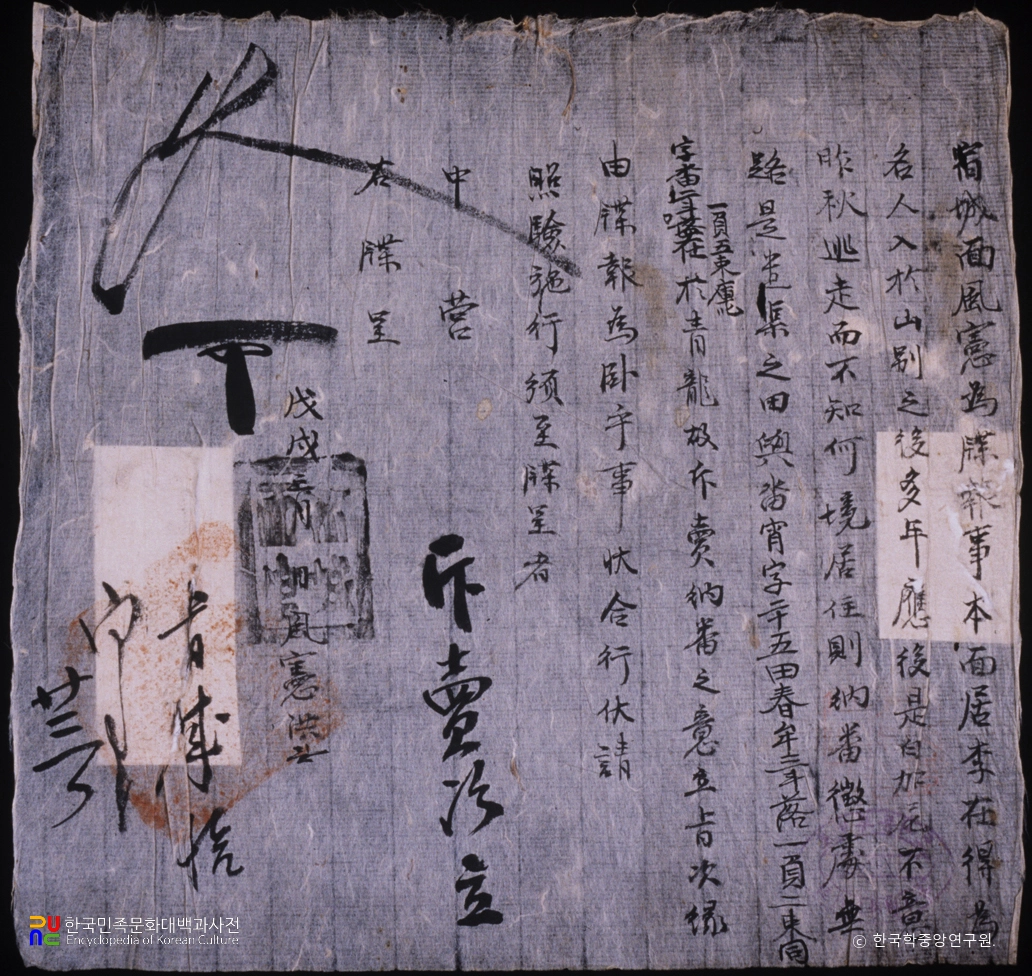 宿城面風憲爲牒報事本面居李在得爲
名人入於山別之後多年應後是白加尼不意
昨秋逃走而不知何境居住則納番徵處無
路是遣渠之田與畓宵字二十五田春牟三斗落一負二束同
字畓一斗落在於青龍坂斥賣納番之意立旨次緣
一負五束庫
由牒報爲臥乎事狀合行伏請
照驗施行須至牒呈者
中 營
右 牒 呈
戊戌三月 日風憲洪
斥賣次立
旨成給
向事
廿三
한국민족문화대백과사전
Encyclopedia of Korean Culture
© 한국학중앙연구원.